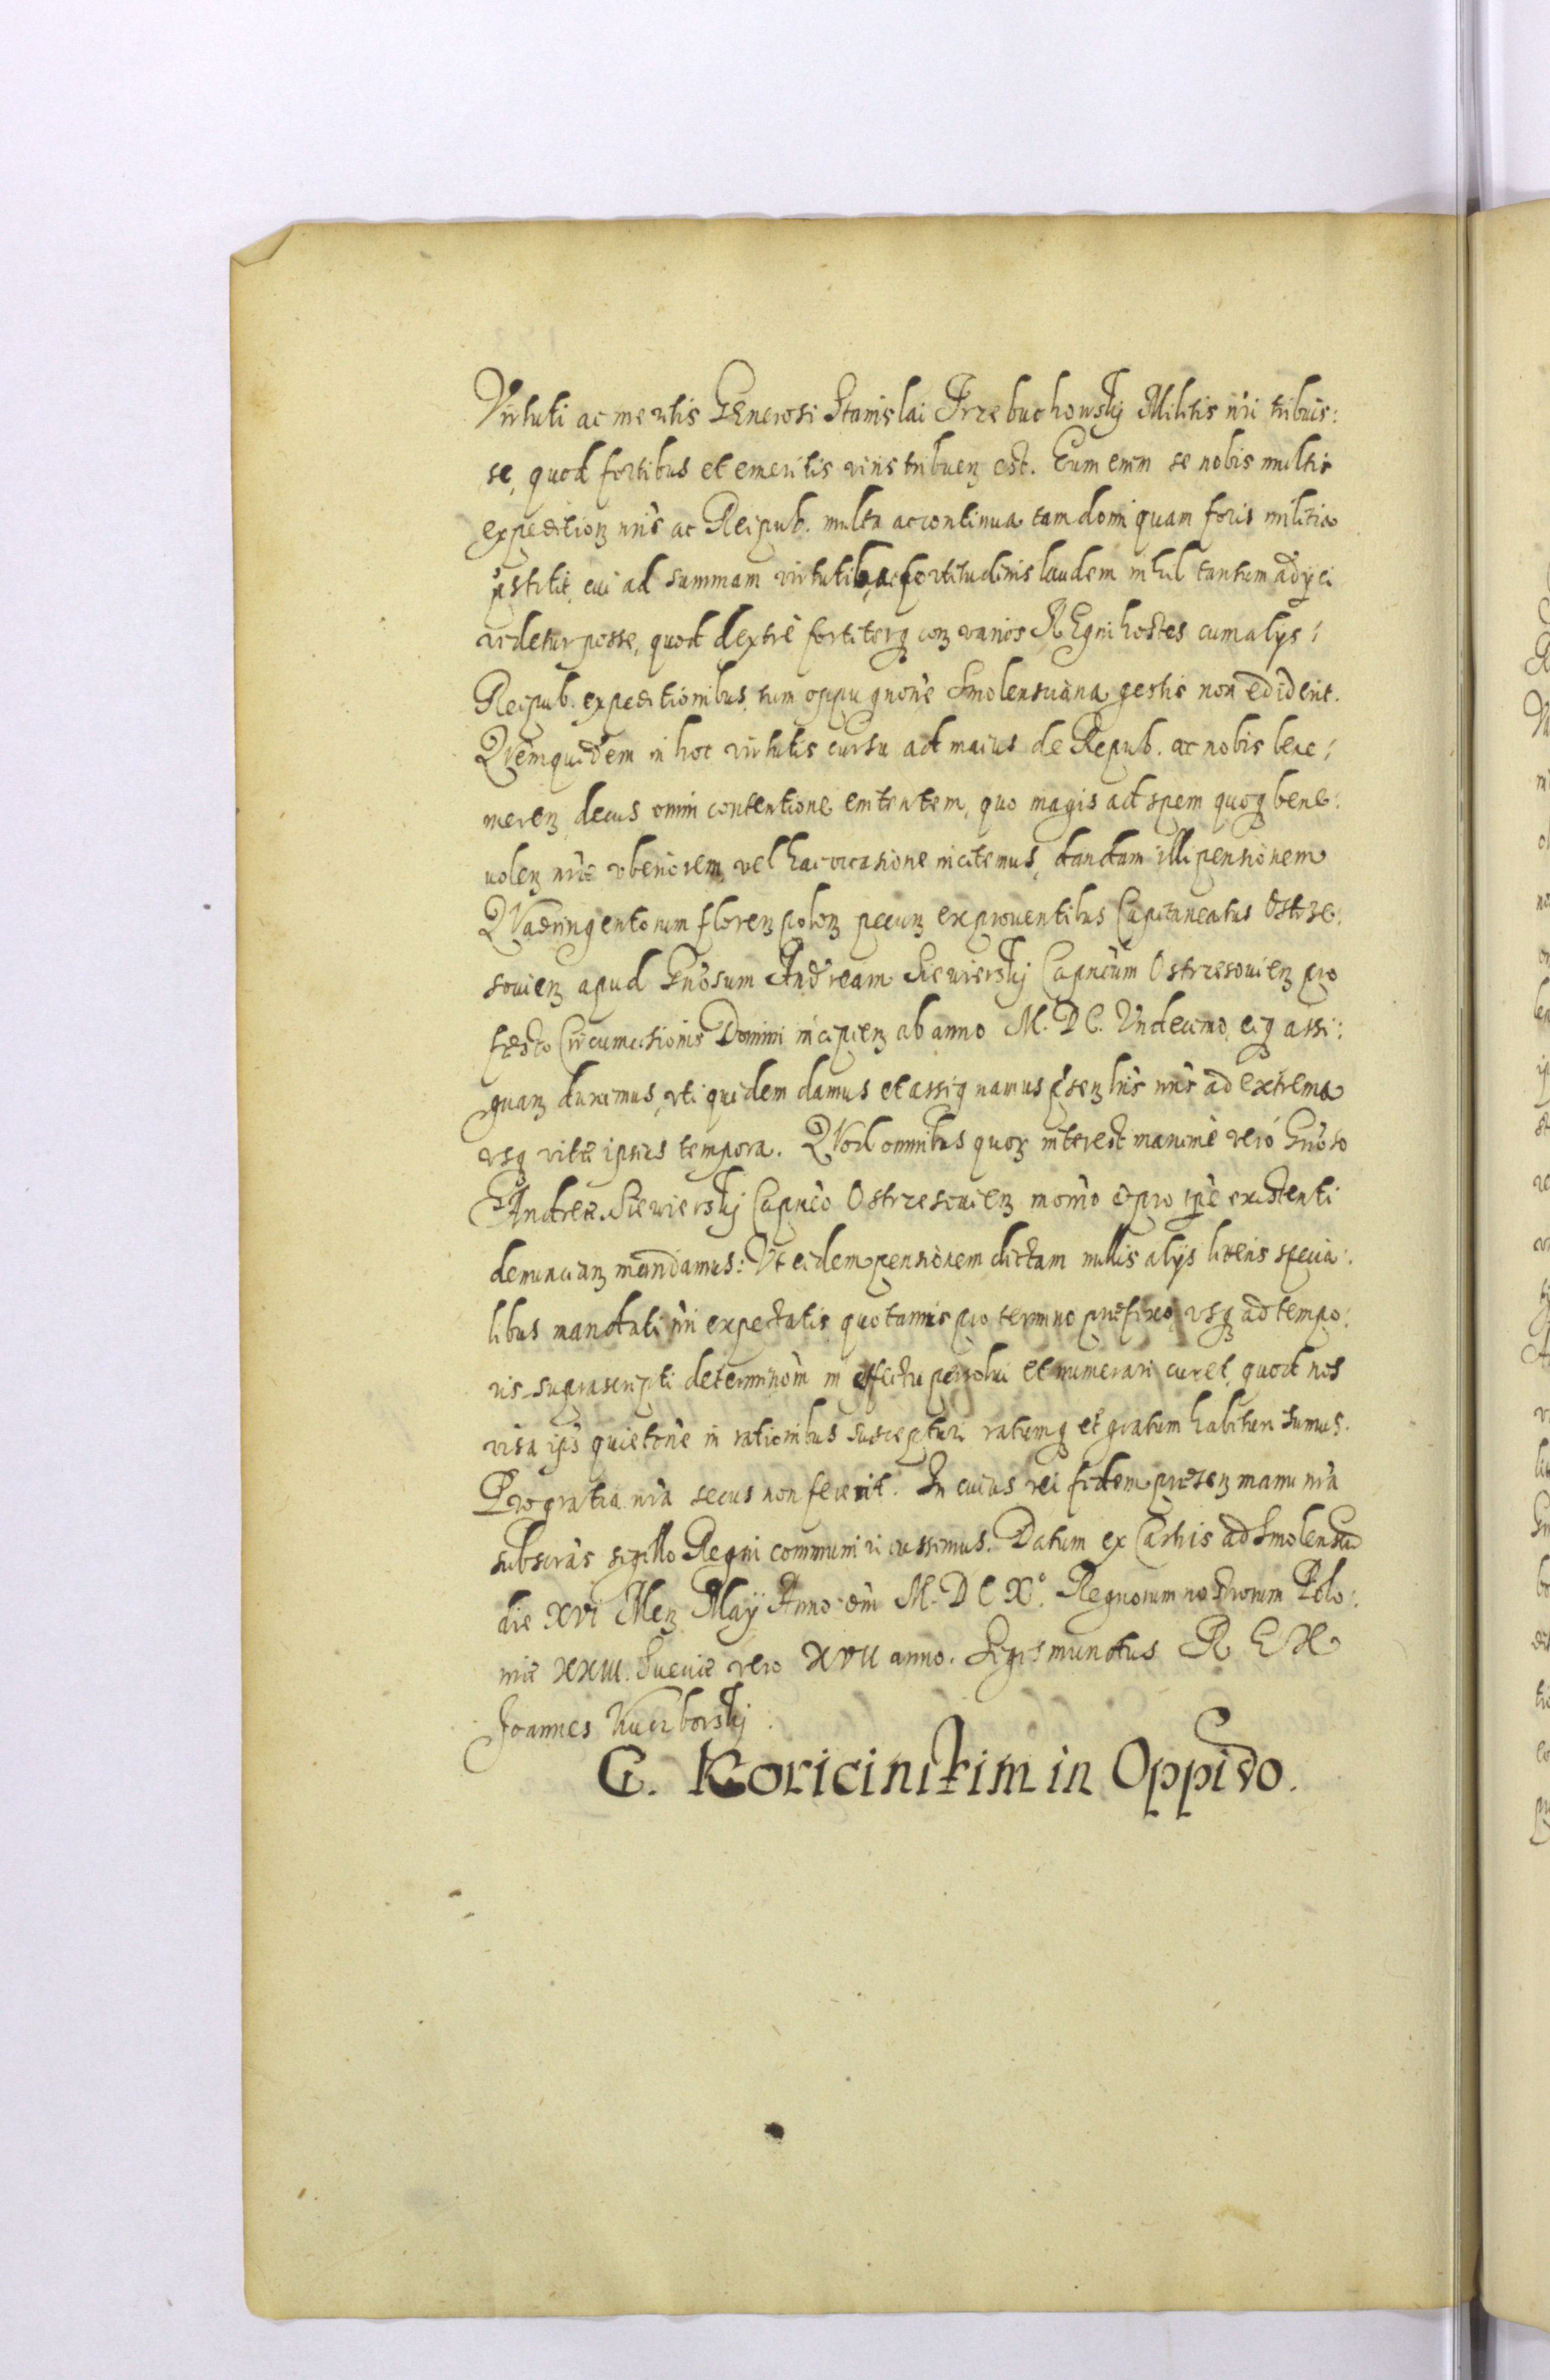 Virtuti ac meritis GEnerosi Stanislai Trzebuchowskij Militis nri tribuis:
se, quod fortibus et emeritis viris tribuen est. Eum enim se nobis multis
expeditioń nris ac Reipub. multa ac continua tam domi quam foris militia
pstitit, cui ad summam virtutis ac fortitudinis laudem nihil tantum adijci
videtur posse, quod dextrè fortiterq con varios REgni hostes cum alys:
Reipub. expeditionibus, tum oppugnone Smolensciana gestis non ediderit.
QVem quidem in hoc virtutis cursu ad maius de Repub. ac nobis bene:
meren decus omni contentione enitentem, quo magis ad spem quoq bene:
uolen nræ vberiorem, vel hac occasione incitemus, dandam illi pensionem
QVadringentorum floren polon pecun ex prouentibus Capitaneatus Ostrze:
souien apud Gnosum Andream Siewierskij Capneum Ostrzesouien pro
festo Circumcisionis Domini incipien ab anno M. DC. Vndecimo, eiq assi:
gnan duximus, vti quidem damus et assignamus psen lris nris ad extrema
vsq vitæ ipsius tempora. QVod omnibus quor interest maxime verò Gnoso
Andreæ Siewierskij Capneo Ostrzesouien moderno et pro tpe existenti
denuncian mandamus: Vt eidem pensionem dictam nullis alys literis specia:
libus mandati nri expectatis quotannis pro termino præfixo, vsq ad tempo:
ris suprascripti determinom in effectu persolui et numerari curet, quod nos
visa ips quietone in rationibus suscepturi ratumq et gratum habituri sumus.
Pro gratia nra secus non fecerit. In cuius rei fidem præsen manu nra
subscras sigillo Regni communiri iussimus. Datum ex Castris ad Smolenscum
die XVI Men Maÿ Anno dni M. D C X°. Regnorum nostrorum Polo:
niæ XXIII. Sueciæ vero XVII anno. Sigismundus R E X
Joannes Kuczborskij.
G. Koricinitim in Oppido.